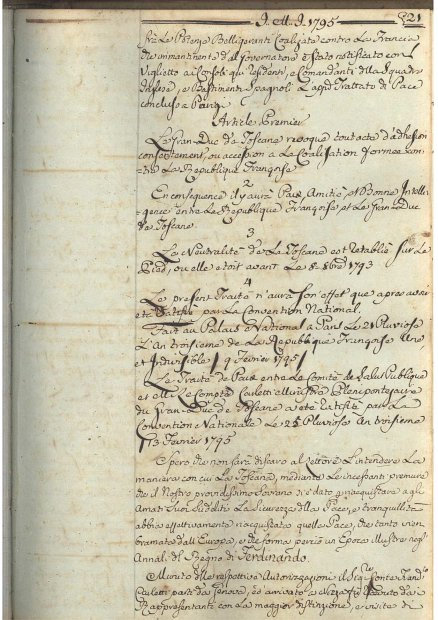 I. M. I. 1795
821
fra le Potenze Belligeranti Coalizate contro la Francia
che immantinenti dal Governatore è stato notificato con
Viglietto ai Consoli qui residenti, e Comandanti della Squadra
Inglese, e Bastimenti Spagnoli l'apid Trattato di Pace
concluso a Parigi
Article Premier
Le Gran Duc de Toscane revoque tout acte d'adhesion
consentement, ou accession a la Coalition formée con-
tre la Republique Françoise
2
En consequence il y aura Paix, Amitié, et Bonne Intelli-
gence entre la Republique Françoise, et le Gran Duc
de Toscane
3
La Neutralité de la Toscane est retablie sur le
Pied, ou elle etoit avant le 8 8bre 1793
4
Le present Traité n'aura son effet que apres avoir
eté ratifié par la Convention National.
Fait au Palais National a Paris le 21 Pluviose
l'An troisieme de la Republique Françoise Une
et Indivisible / 9 Fevrier 1795 /
Le Traité de Paix entre le Comité de Salut Publique
et M. le Compte Carletti Ministre Plenipotentiaire
du Gran Duc de Toscane a eté ratifié par la
Convention Nationale le 25 Pluviose An troisieme
13 Fevrier 1795
Spero che non sarà discaro al Lettore l'intendere la
maniera con cui la Toscana, mediante le incessanti premure
del il Nostro provvidissimo Sovrano è stato riacquistare agli
Amati Suoi Sudditi la Sicurezza della Pace, e tranquillità
abbia effettivamente riacquistata quella Pace, che tanto vien
bramata dall'Europa, e che forma perciò un Epoca illustre negli
Annali del Regno di Ferdinando.
Munito delle respettive Autorizzazioni il Sig.re Conte
Carletti partì da Genova, ed arrivato a Nizza fu ricevuto da
Rappresentanti con la maggior distinzione, e visite di